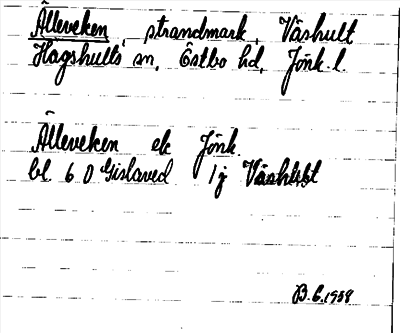 Älleveken, strandmark, Våshult
Hagshults sn, Östbo hd, Jönk. l.
Älleveken ek Jönk.
bl. 6 D Gislaved 1j Våshult
B.E. 1959